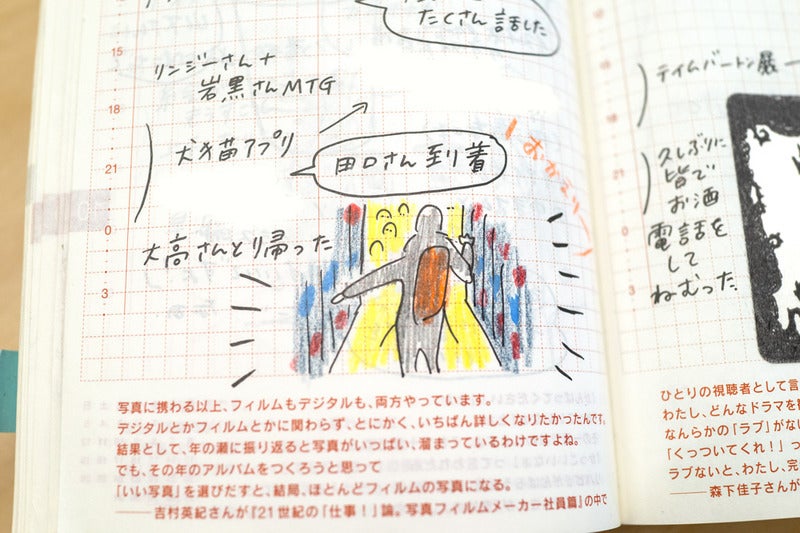 たくさん話した
15
リンジーさん+
岩黒さんMTG
18
犬猫アプリ
田口さん到着
おかえりー
21
0
大高さんと帰った
3
写真に携わる以上、フィルムもデジタルも、両方やっています。
デジタルとかフィルムとかに関わらず、とにかく、いちばん詳しくなりたかったんです。
結果として、年の瀬に振り返ると写真がいっぱい、溜まっているわけですよね。
でも、その年のアルバムをつくろうと思って
「いい写真」を選びだすと、結局、ほとんどフィルムの写真になる。
――吉村英紀さんが『21世紀の「仕事！」論。写真フィルムメーカー社員篇』の中で
テイムバートン展
18
久しぶりに
21
皆で
お酒
0
電話を
して
3
ねむった
ひとりの視聴者として言
わたし、どんなドラマを
なんらかの「ラブ」がな
「くっついてくれ！」っ
ラブないと、わたし、完
――森下佳子さんが